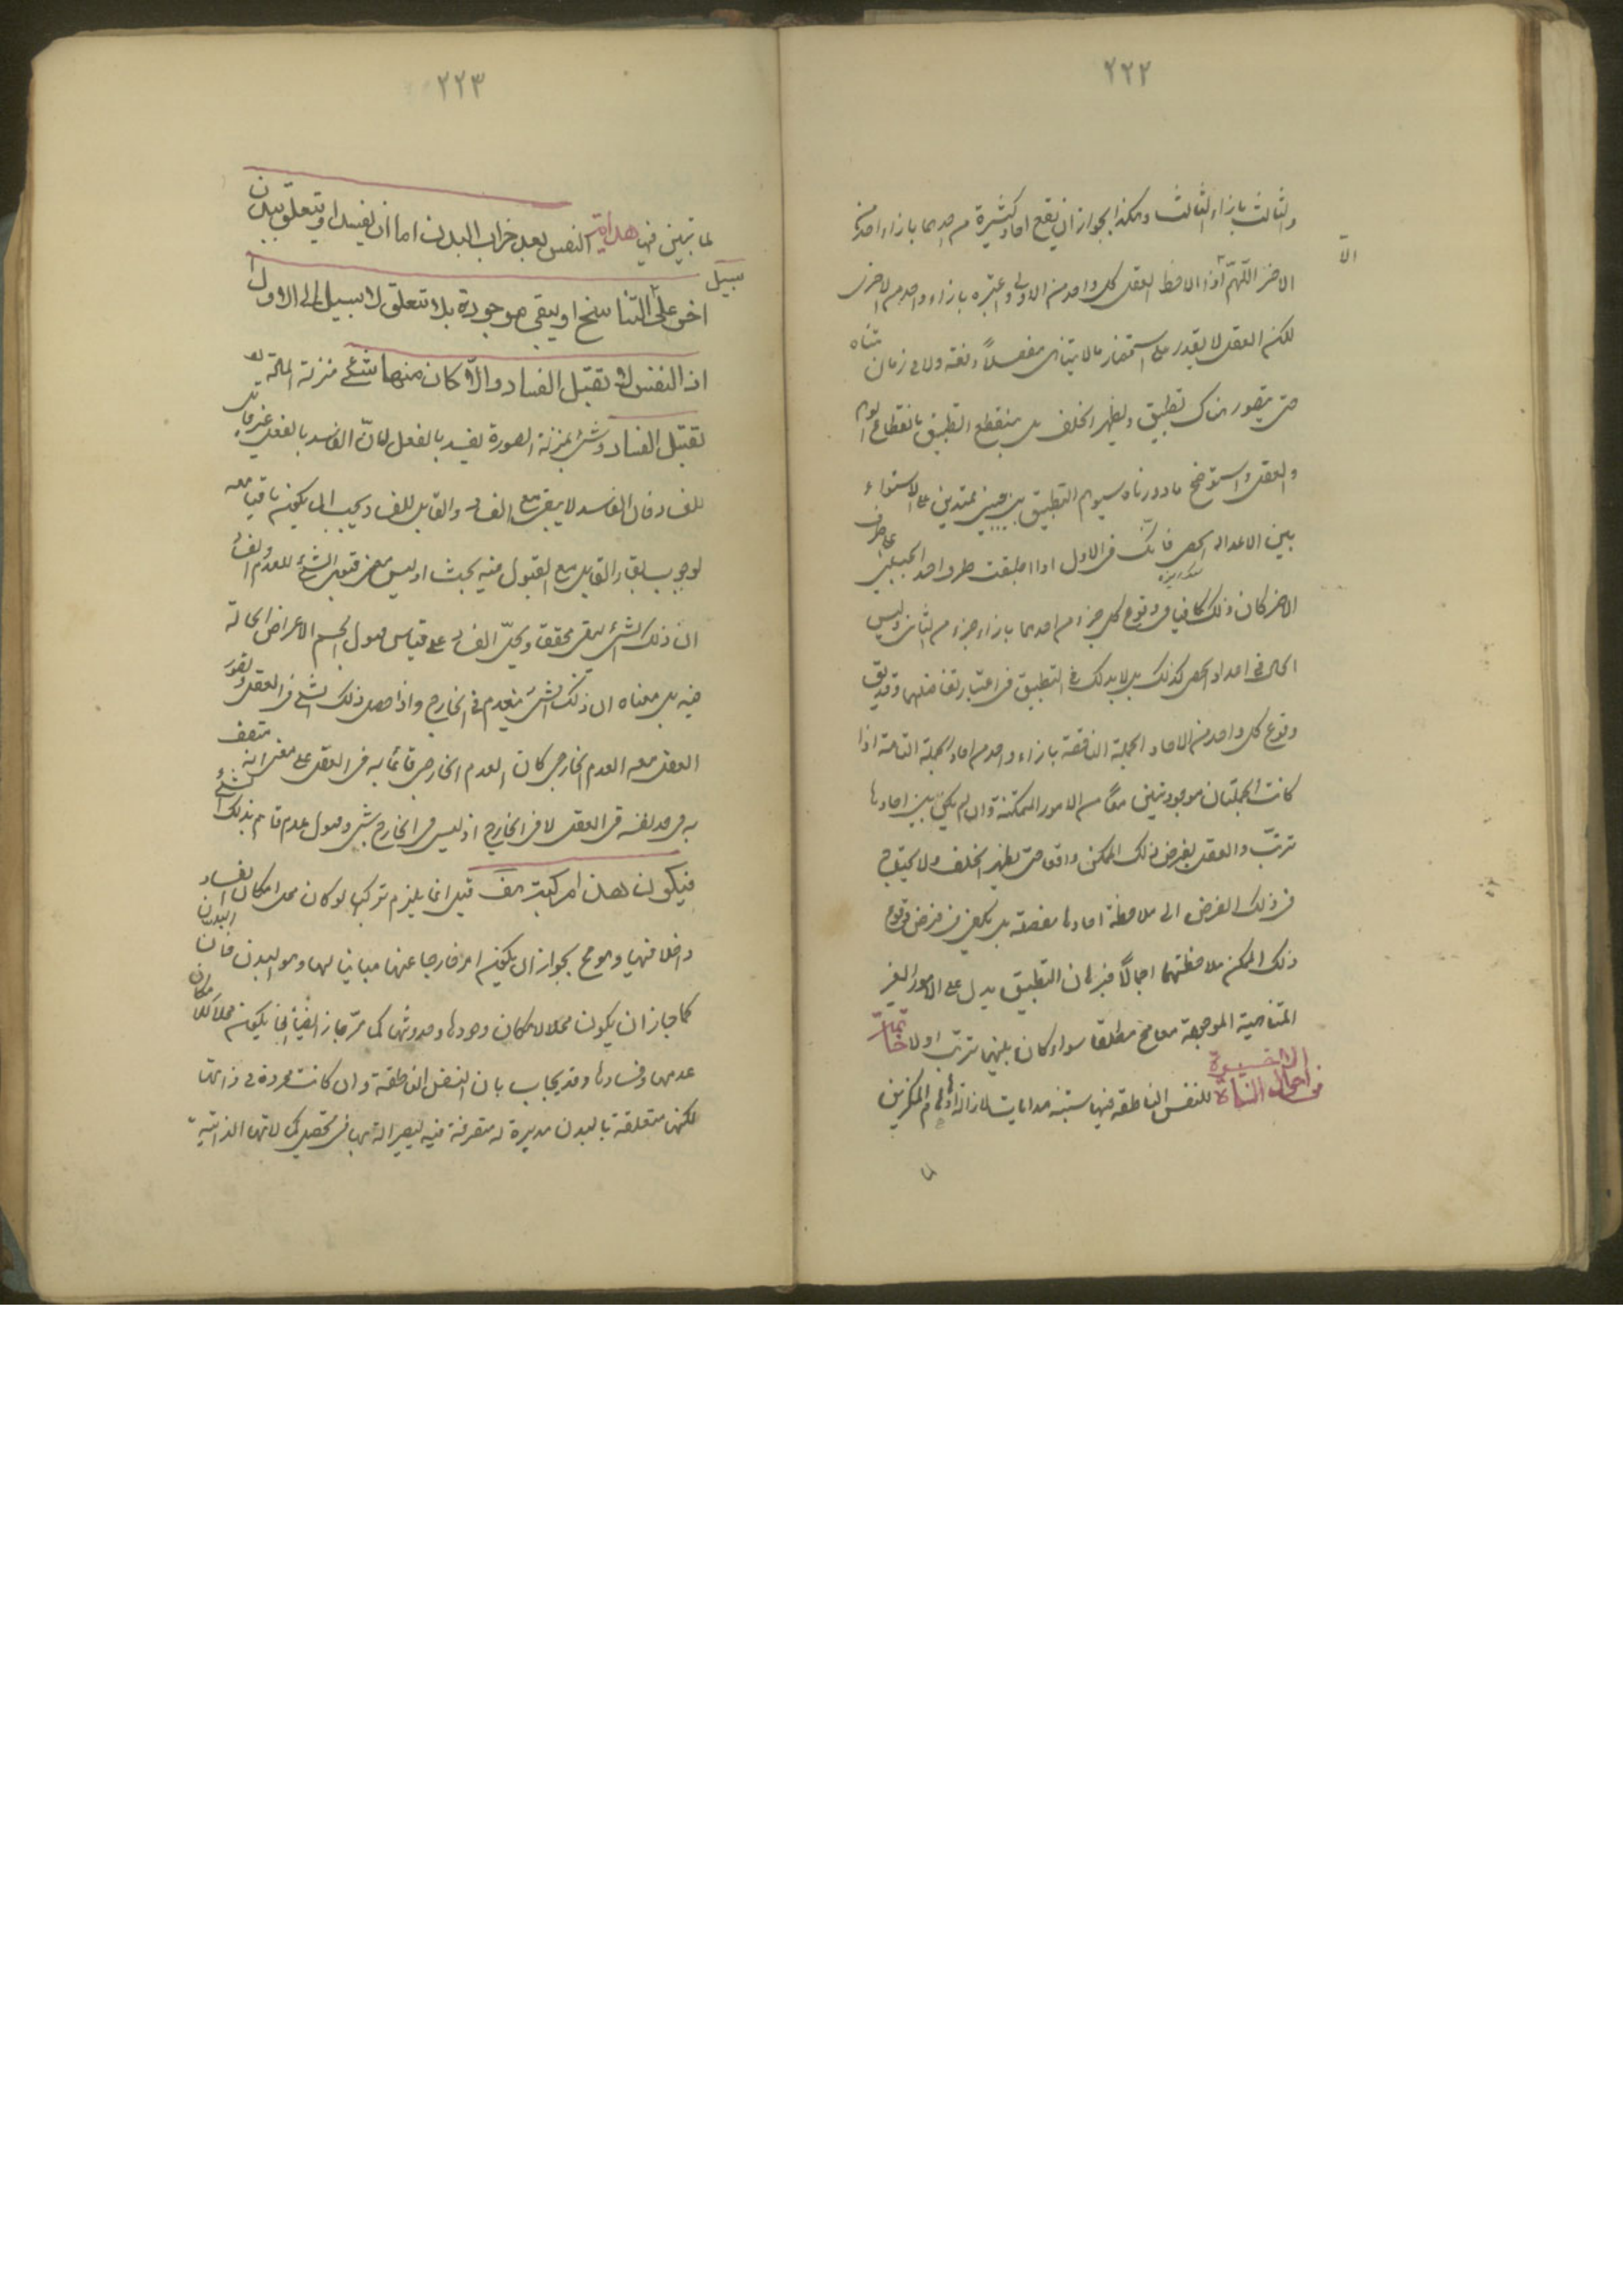 ٢٢٢
والثالث بازاء الثالث وهكذا لجواز ان يقع احاد كثيرة من احدهما بازاء واحد من
الاخر اللّهمّ الّا اذا لاحظ العقل كل واحد من الاولى واعتبره بازاء واحد من الاخرى
لكن العقل لا يقدر على استحضار ما لا يتناهى مفصلاً دفعة ولا فى زمان متناه
حتى يتصور هناك تطبيق ويظهر الخلف بل ينقطع التطبيق بانقطاع الوهم
والعقل واستوضح ما صورناه بتوهم التطبيق بين جبلين ممتدين على الاستواء
بين الاعداد الحصى فانك فى الاول اذا طبقت طرف احد الجبلين على طرف
الاخر كان ذلك كافيا فى وقوع كل جزء من احدهما بازاء جزء من الثانى وليس
الحال فى اعداد الحصى كذلك بل لا بد لك فى التطبيق من اعتبار تفاصيلها وقد يق
وقوع كل واحد من الاحاد الجملة الناقصة بازاء واحد من احاد الجملة التامة اذا
كانت الجملتان موجودتين معًا من الامور الممكنة وان لم يكن بين احادها
ترتب والعقل يفرض ذلك الممكن واقعا حتى يظهر الخلف ولا يحتاج
فى ذلك الفرض الى ملاحظة احادها مفصلة بل يكفى فى فرض وقوع
ذلك الممكن ملاحظتهما اجمالًا فبرهان التطبيق يدل على الامور الغير
المتناهية الموجودة معا مح مطلقا سواء كان بينها ترتب او لا خاتمة
فى احوال النشاة الاخيرة للنفس الناطقة فيها ستة هدايات لازالة اوهام المنكرين
٢٢٣
لما تبين فيها هداية النفس بعد خراب البدن اما ان تفسد او يتعلق ببدن
اخر على سبيل التناسخ او يبقى موجودة بلا تعلق لا سبيل الى الاول
اذ النفس لا تقبل الفساد والّا كان منها شئ بمنزلة المادة
تقبل الفساد وشئ بمنزلة الصورة يفسد بالفعل لانّ الفاسد بالفعل غير قابل
للفساد فان الفاسد لا يبقى مع الفساد والقابل للفساد يجب ان يكون باقيا معه
لوجوب بقاء القابل مع المقبول فيه بحث اذ ليس معنى قبول الشئ للعدم والفساد
ان ذلك الشئ يبقى محققا ويحلّ الفساد على قياس حصول الجسم الاعراض الحالة
فيه بل معناه ان ذلك الشئ ينعدم فى الخارج واذا حصل ذلك الشئ فى العقل وتصور
العقل معه العدم الخارجى كان العدم الخارجى قائما به فى العقل على معنى انه متصف
به فى حد نفسه فى العقل لا فى الخارج اذ ليس فى الخارج شئ وحصول عدم قائم بذلك الشئ
فيكون هذا مركبة هف قيل انما يلزم تركبها لو كان محل امكان الفساد
داخلا فيها وهو مح لجواز ان يكون امر خارجا عنها مباينا لها وهو البدن فان البدن
كما جاز ان يكون محلا لامكان وجودها وحدوثها كما مرّ جاز ايضا ان يكون محلا لامكان
عدمها وفسادها وقد يجاب بان النفس الناطقة وان كانت مجردة فى ذاتها
لكنها متعلقة بالبدن مدبرة له متصرفة فيه ليصير آلة لها فى تحصيل كمالاتها الذاتية